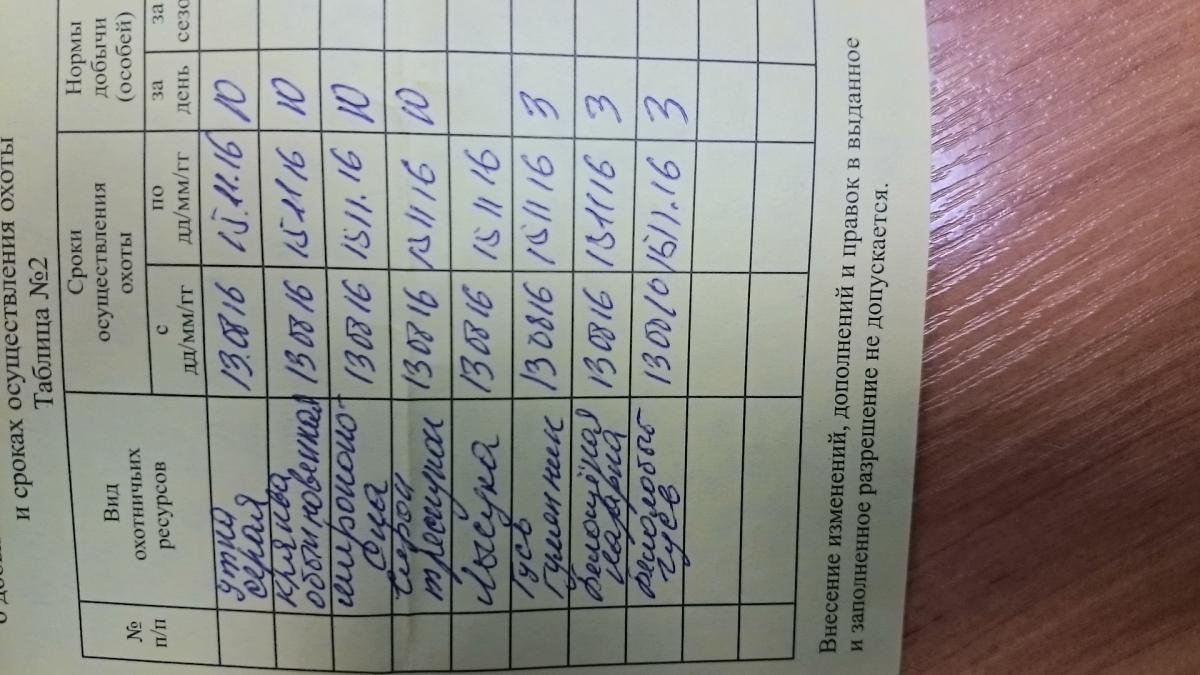 и сроках осуществления охоты
Таблица №2
№ п/п
Вид охотничьих ресурсов
Сроки осуществления охоты
Нормы добычи (особей)
с дд/мм/гг
по дд/мм/гг
за день
за
утка серая 13.08.16 15.11.16 10
кряква обыкновенная 13 08 16 15 11 16 10
широконоска 13 08 16 15 11. 16 10
серой трескунок 13 08 16 15 11 16 10
Лысуха 13 08 16 15 11 16
Гусь гуменник 13 08 16 15 11 16 3
белощёкая казарка 13 08 16 15 11 16 3
белолобый гусь 13 08 16 15 11. 16 3
Внесение изменений, дополнений и правок в выданное
и заполненное разрешение не допускается.